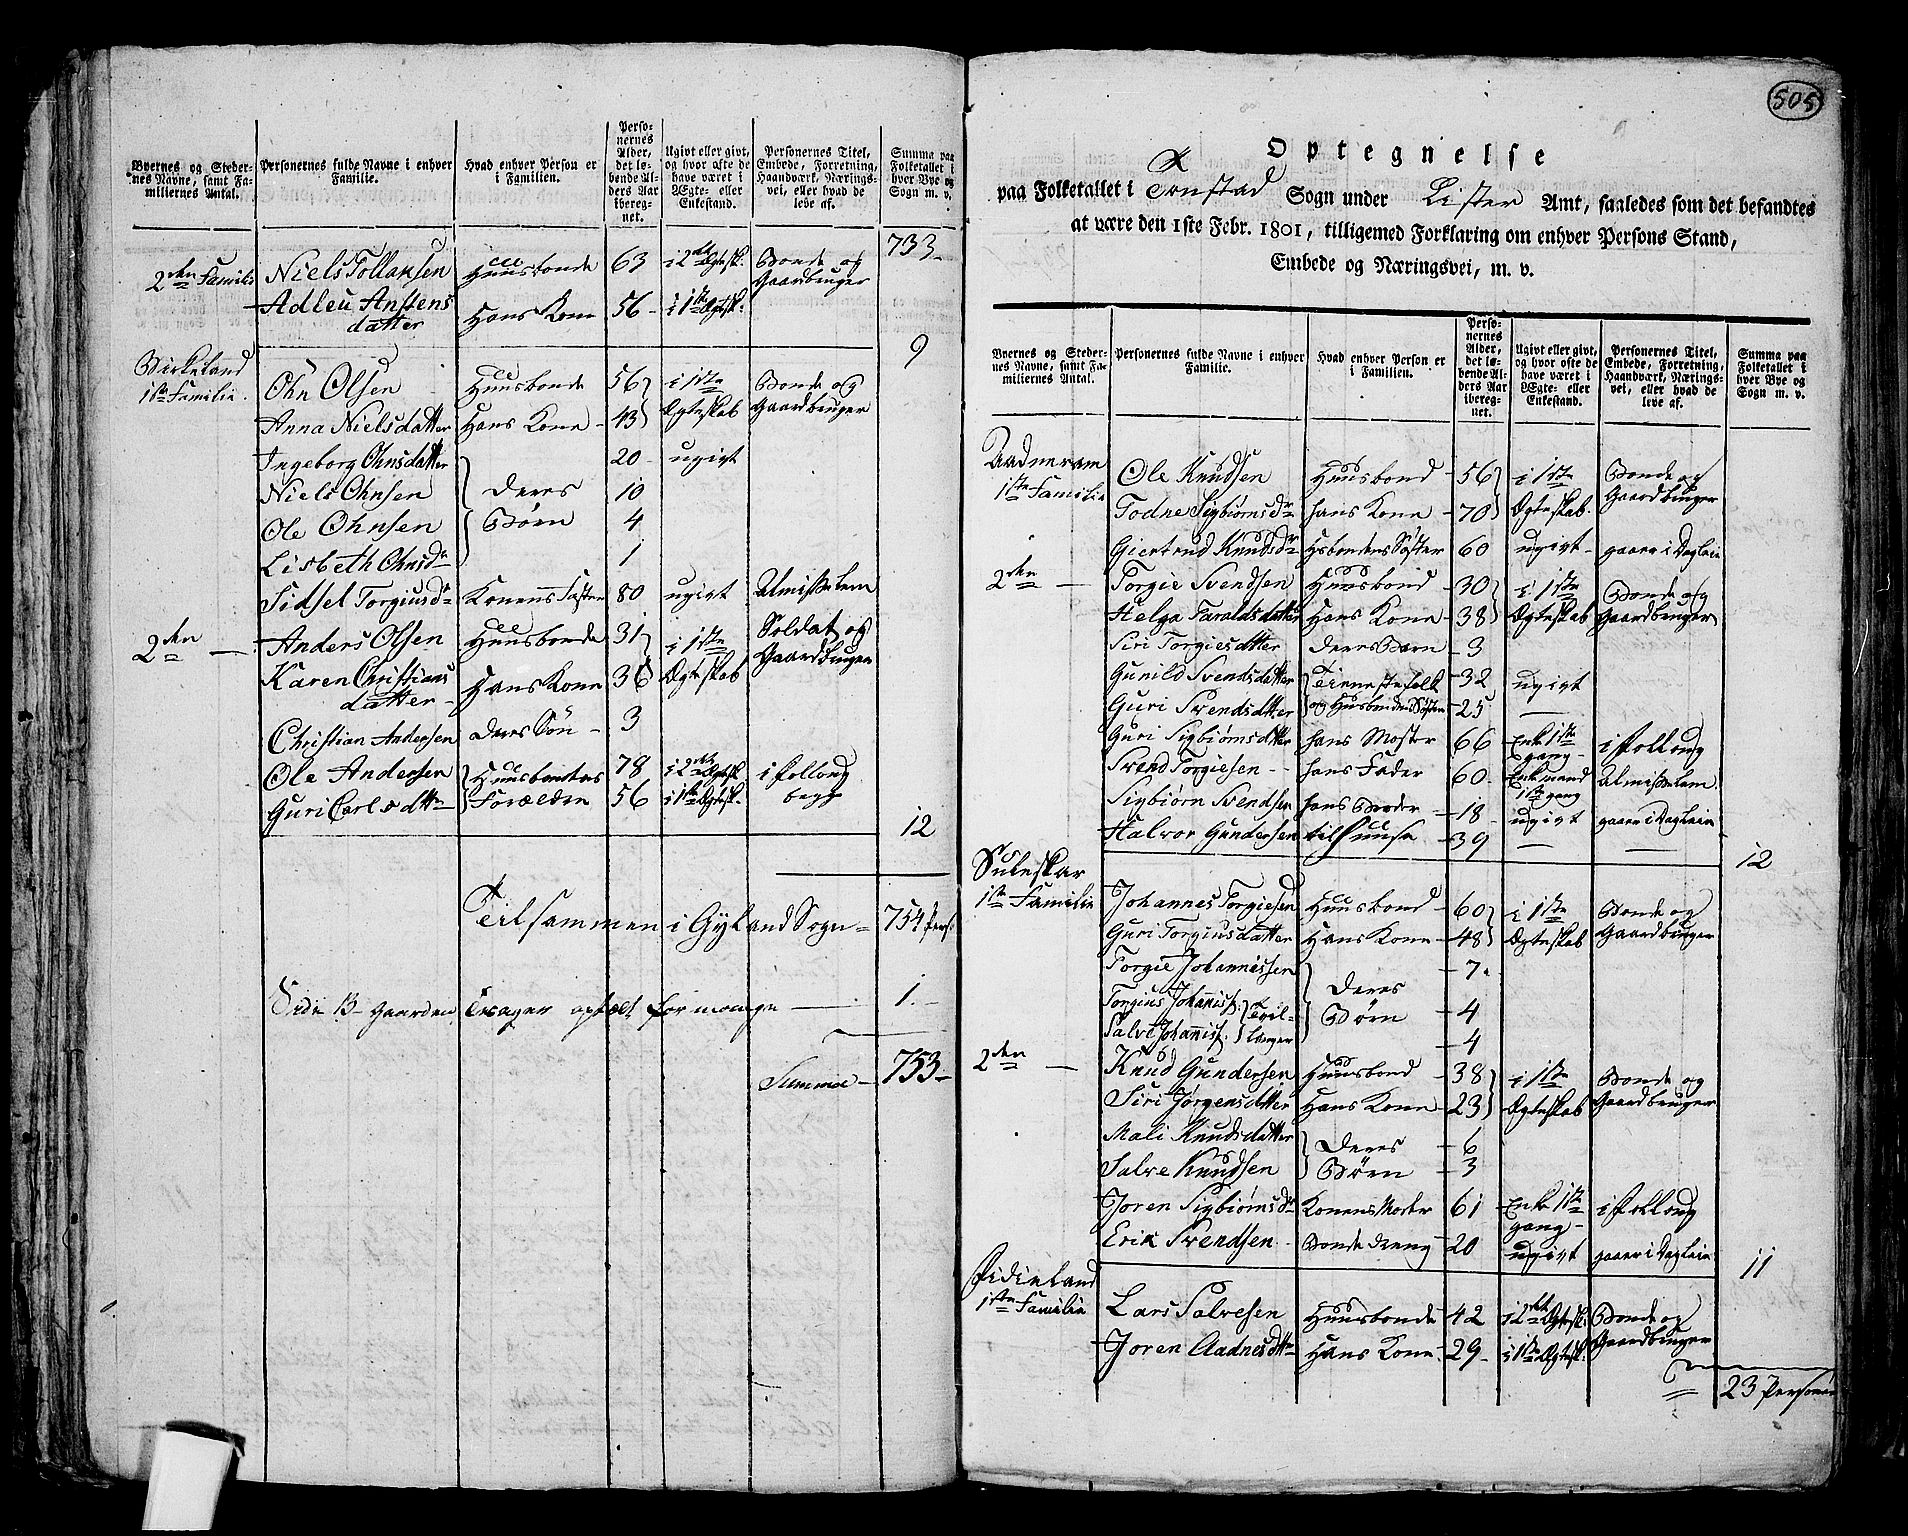 Byernes og Stedernes Navne, samt Familiernes Antal. | Personernes fulde Navne i enhver Familie. | Hvad enhver Person er i Familien. | Personernes Alder, det løbende Alders Aar iberegnet. | Ugivt eller givt, og hvor ofte de have været i Ægte- eller Enkestand. | Personernes Titel, Embede, Forretning, Haandværk, Næringsvei, eller hvad de leve af. | Summa paa Folketallet i hver Bye og Sogn m. v.
733
2den Familie | Niels Tollaksen | Huusbonde | 63 | i 2det Ægtesk. | Bonde og Gaardbruger
Adleu Anstensdatter | Hans Kone | 56 | i 1ste Ægtesk.
9
Birkeland 1ste Familie. | Ohn Olsen | Huusbonde | 56 | i 1ste | Bonde og
Anna Nielsdatter | Hans Kone | 43 | Ægteskab | Gaardbruger
Ingeborg Ohnsdatter | 20 | ugivt
Niels Ohnsen | Deres | 10
Ole Ohnsen | Børn | 4
Lisbeth Ohnsdr | 1
Sidsel Torgiusdr | Konens Søster | 80 | ugivt | Almisselem
2den | Anders Olsen | Huusbonde | 31 | i 1ste | Soldat og
Karen Christiansdatter | Hans Kone | 36 | Ægteskab | Gaardbruger
Christian Andersen | Deres Søn | 3
Ole Andersen | Huusbondens | 78 | i 2det Ægtesk. | i Folloug
Guri Carlsdttr | Forældre | 56 | i 1ste Ægtesk. | begge
12
Tilsammen i Gyland Sogn | 754 Pers.
Side 13 Gaarden optælt for mange | 1.
Summa | 753
505
Optegnelse
paa Folketallet i Tonstad Sogn under Lister Amt, saaledes som det befandtes
at være den 1ste Febr. 1801, tilligemed Forklaring om enhver Persons Stand,
Embede og Næringsvei, m. v.
Byernes og Stedernes Navne, samt Familiernes Antal. | Personernes fulde Navne i enhver Familie. | Hvad enhver Person er i Familien. | Personernes Alder, det løbende Alders Aar iberegnet. | Ugivt eller givt, og hvor ofte de have været i Ægte- eller Enkestand. | Personernes Titel, Embede, Forretning, Haandværk, Næringsvei, eller hvad de leve af. | Summa paa Folketallet i hver Bye og Sogn m. v.
Aadneram 1ste Familie | Ole Knudsen | Huusbond | 56 | i 1ste | Bonde og
Todne Sigbiørnsdr | hans Kone | 70 | Ægteskab. | Gaardbruger
Giertrud Knudsdr | Hsbondens Søster | 60 | ugivt | gaaer i Dagleie
2den | Torgie Svendsen | Huusbond | 30 | i 1ste | Bonde og
Helga Taraldsdatter | Hans Kone | 38 | Ægteskab | Gaardbruger
Siri Torgiesdatter | deres Barn | 3
Gunild Svendsdatter | Tienestefolk | 32 | ugivt
Guri Svendsdatter | og Husbondens Søstre | 25 | —
Guri Sigbiørnsdatter | hans Moster | 66 | Enke 1ste gang | i Folloug
Svend Torgiesen | hans Fader | 60 | Enkemand 1ste gang | Almisselem
Sigbiørn Svendsen | hans Broder | 18 | ugivt | gaaer i Dagleie
Halvor Gundersen | til Huuse | 39 | — | —
12
Suleskar 1ste Familie | Johannes Torgiesen | Huusbond | 60 | i 1ste | Bonde og
Guri Torgiusdatter | Hans Kone | 48 | Ægteskab | Gaardbruger
Torgie Johannessen | 7
Torgius Johaniss. | Tvil- | Deres | 4
Salve Johaniss. | linger | Børn | 4
2den | Knud Gundersen | Huusbond | 38 | i 1ste | Bonde og
Siri Jørgensdatter | Hans Kone | 23 | Ægteskab | Gaardbruger
Mali Knudsdatter | Deres | 6
Salve Knudsen | Børn | 3
Joren Sigbiørnsdr | Konens Moster | 61 | Enke 1ste gang | i Folloug
Erik Svendsen | Bondedreng | 20 | ugivt | gaaer i Dagleie
11
1ste Familie | Lars Salvesen | Huusbonde | 42 | i 2det Ægtesk. | Bonde og
Joren Aadnesdttr | Hans Kone | 29 | i 1ste Ægtesk. | Gaardbruger
23 Personer